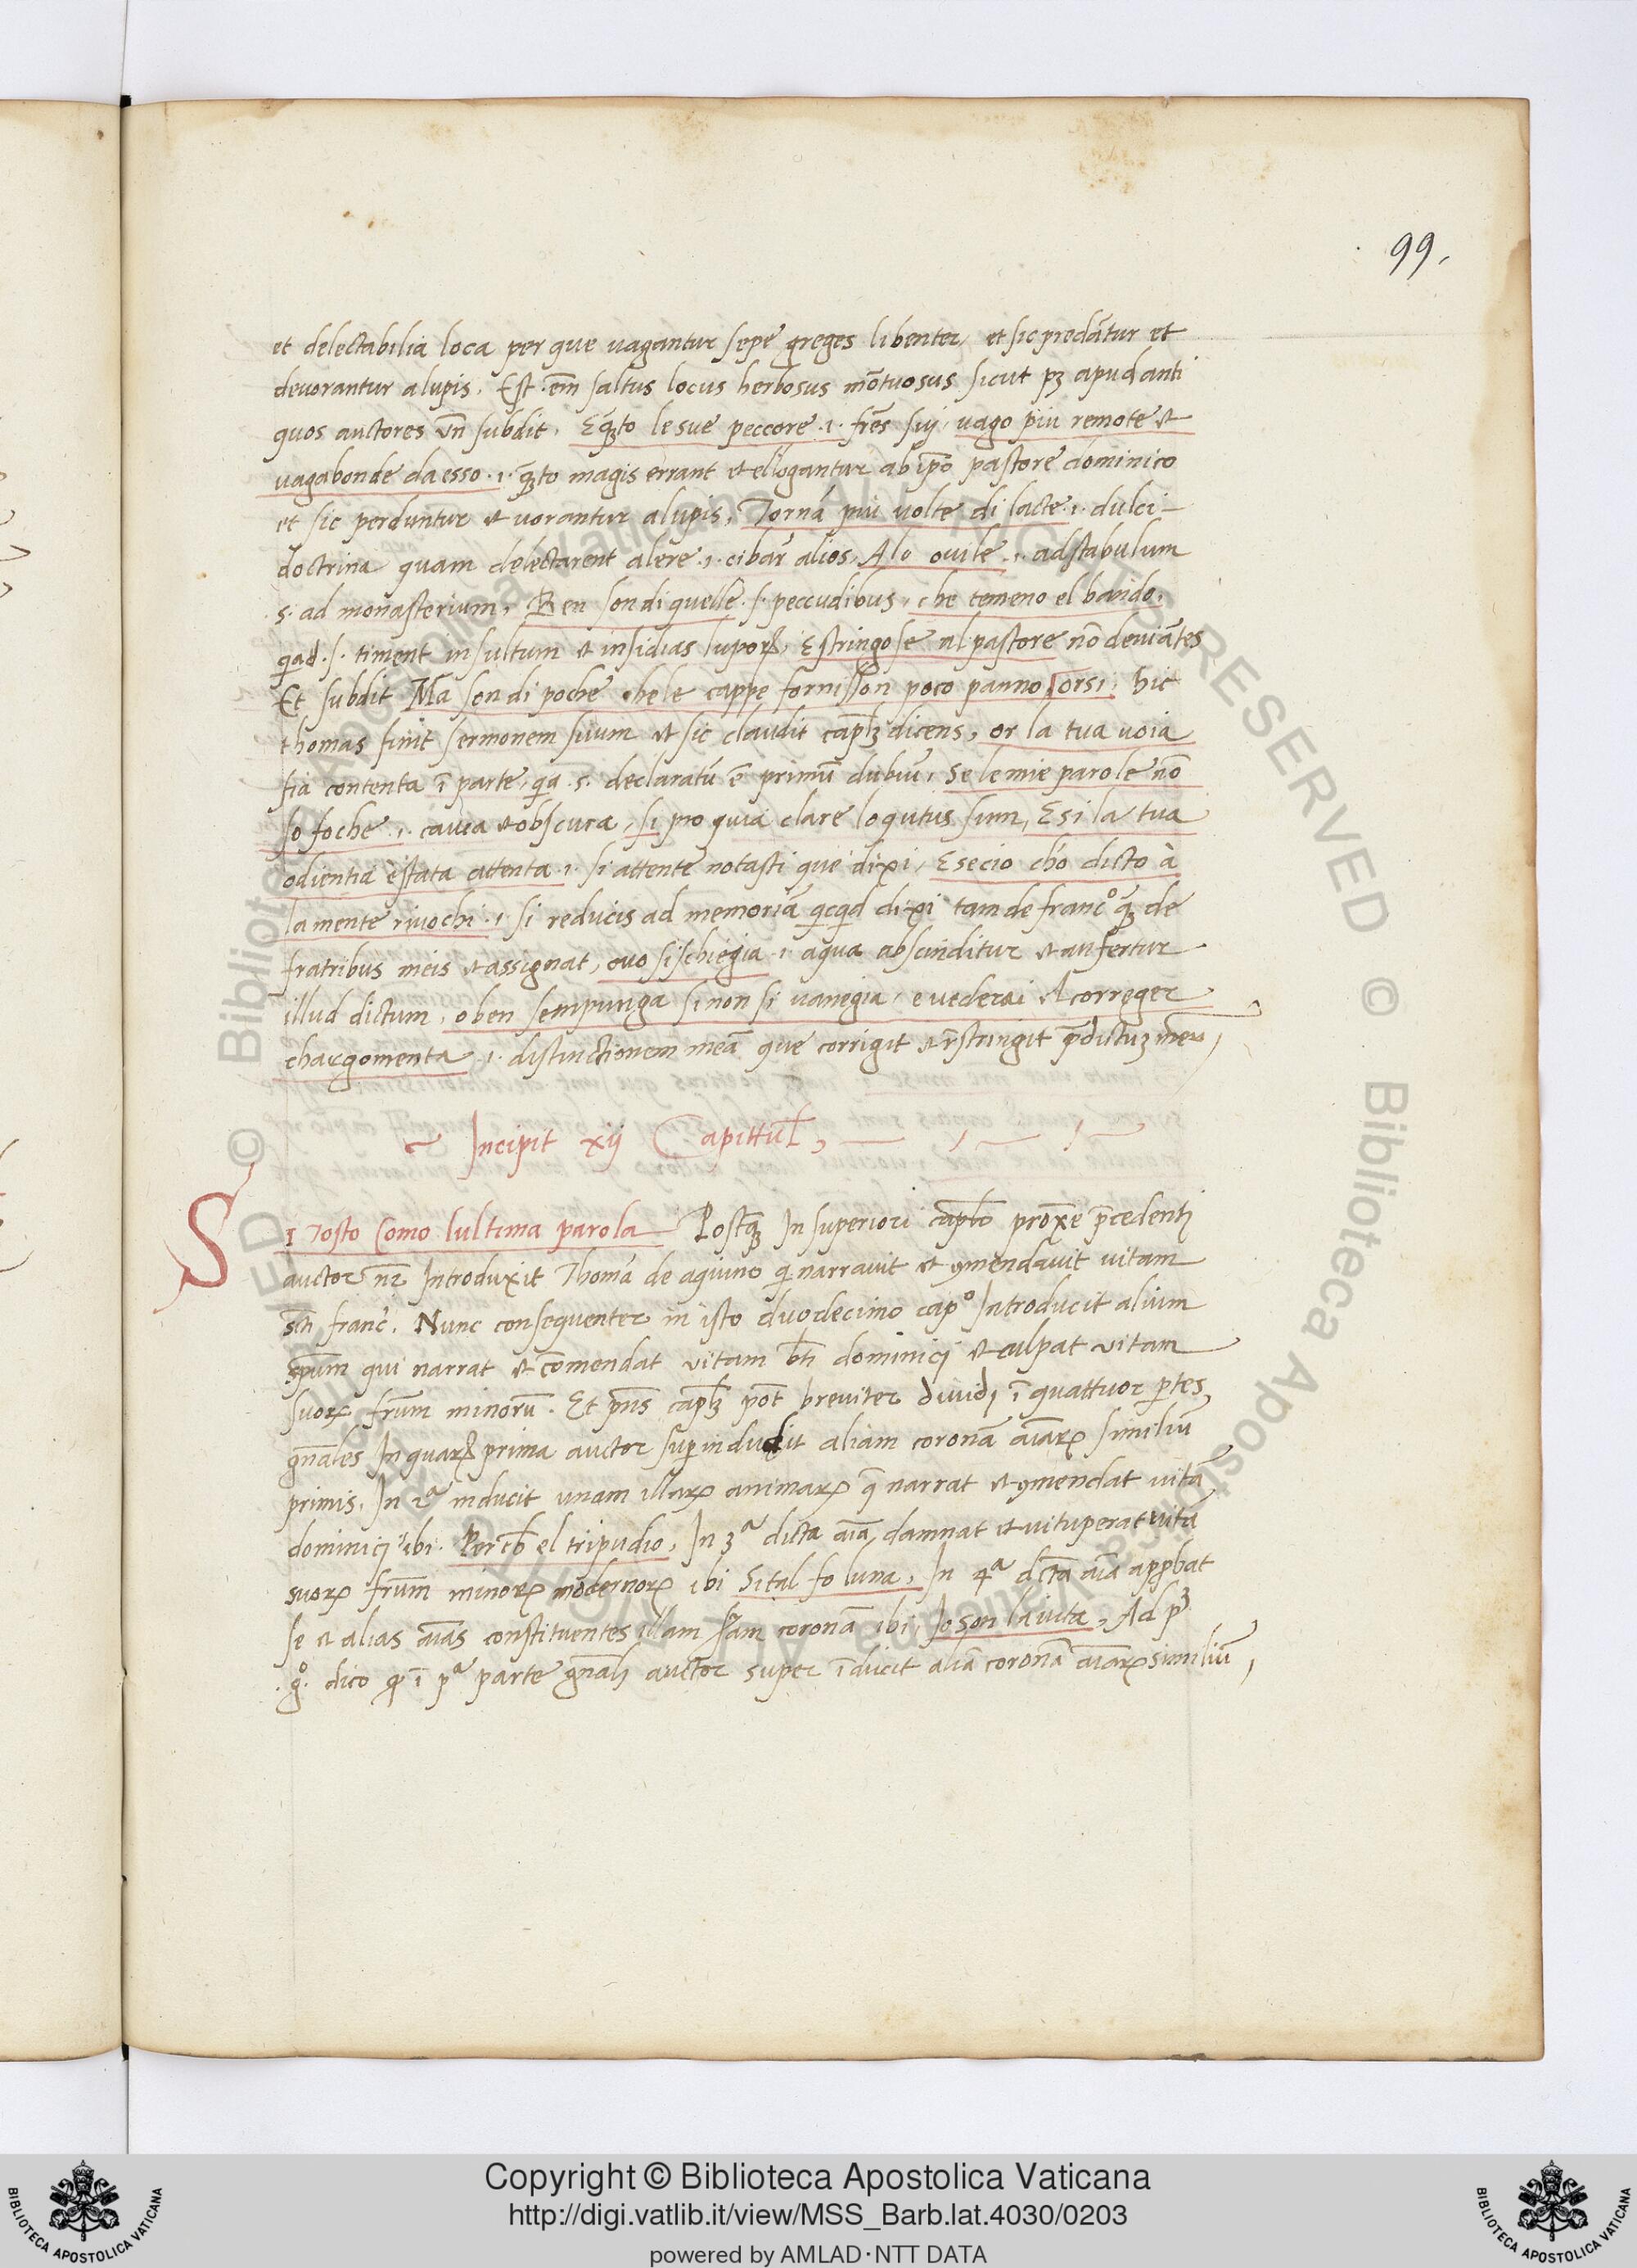 99.
et delectabilia loca per que uagantur sepe greges libenter, et sic predātur et
devorantur a lupis. Est. em̄ saltus locus herbosus mōtuosus sicut pȝ apud anti
quos auctores vn̄ subdit. Eq̄ȝto le sue peccore .i. frēs sui, uago piu remote et
vagabonde da esso .i. q̄ȝto magis errant et ellogantur ab ip̄o pastore dominico
et sic perduntur et uorantur a lupis, Tornā piu uolte di lacte .i. dulci
doctrina quam delectarent alere .i. cibar̄ alios. A lo ovile .i. ad stabulum
.s. ad monasterium. Ben son di quelle .s. peccudibus, che temeno el bando.
qad .s. timent insultum et insidias lupoꝝ, E stringose al pastore nō deviātes
Et subdit Ma son di poche che le cappe fornisson poco panno orsi. hic
thomas finit sermonem suum et sic claudit cap̄lȝ dicens, or la tua uoia
fia contenta ī parte, qa .s. declaratū ē primū dubiū, Se le mie parole nō
so foche .i. cauca et obscura, si pro quia clare loqutus sum, E si la tua
odientia è stata attenta .i. si attente notasti que dixi, E se cio chò dicto à
la mente riuochi .i. si reducis ad memoriā qcqd dixi tam de franc.º q̄ȝ de
fratribus meis et assignat, ovo si schiegia .i. aqua abscinditur et aufertur
illud dictum, o ben sempunga si non si uanegia, e uederai el correger
chargomenta .i. distinctionem meā que corrigit et rīstringit p̄dictuȝ meū,
Incipit xij Capittul̄,
Si Tosto como lultima parola Postq̄ȝ In superiori cap̄lo proxē p̄cedenti
auctor nr̄ Introduxit Thomā de aquino q̄ narravit et ꝯmendavit vitam
sc̄ti franc̄. Nunc consequenter in isto duodecimo capº Introducit alium
sp̄um qui narrat et cōmendat vitam bt̄i dominici et culpat vitam
suoꝝ frūm minorū. Et pn̄s cap̄lȝ pōt breviter dividi ī quattuor ꝑtes
gn̄ales In quaꝝ prima auctor suꝑinducit aliam coronā aīaꝝ similiū
primis. In 2ª inducit unam illaꝝ animaꝝ q̄ narrat et ꝯmendat vitā
dominici ibi. Per cħ el tripudio, In 3ª dicta aīa damnat et vituperat vitā
suoꝝ frūm minoꝝ modernoꝝ ibi Si tal fo luna, In 4ª dc̄ta aīa apꝓbat
se et alias aīas constituentes illam sc̄am coronā ibi, Io son la iuta, Ad pȝ
.gº. dico ꝙ ī pª parte gn̄ali auctor super īducit aliā coronā aīaꝝ similiū,
Copyright © Biblioteca Apostolica Vaticana
http://digi.vatlib.it/view/MSS_Barb.lat.4030/0203
powered by AMLAD·NTT DATA
BIBLIOTECA APOSTOLICA VATICANA
BIBLIOTECA APOSTOLICA VATICANA